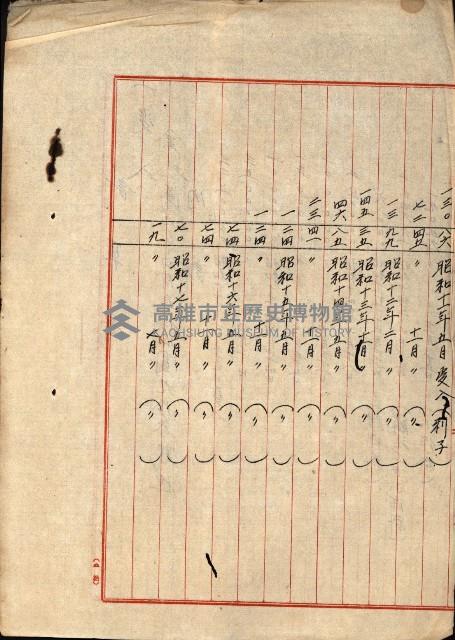 一三〇 八六 昭和十二年五月 受入(利子)
七二 四五 〃 十一月 〃 (〃)
一三九 九九 昭和十三年二月 〃 (〃)
一四五 三五 昭和十三年十一月 〃 (〃)
四六 八五 昭和十四年五月 〃 (〃)
二三 四一 〃 十一月 〃 (〃)
一 二四 昭和十五年五月 〃 (〃)
一 二四 〃 十一月 〃 (〃)
七四 昭和十六年五月 〃 (〃)
七四 〃 〃 (〃)
七〇 昭和十七年五月 〃 (〃)
一九 〃 七月 〃 (〃)
高雄市立歷史博物館
KAOHSIUNG MUSEUM OF HISTORY